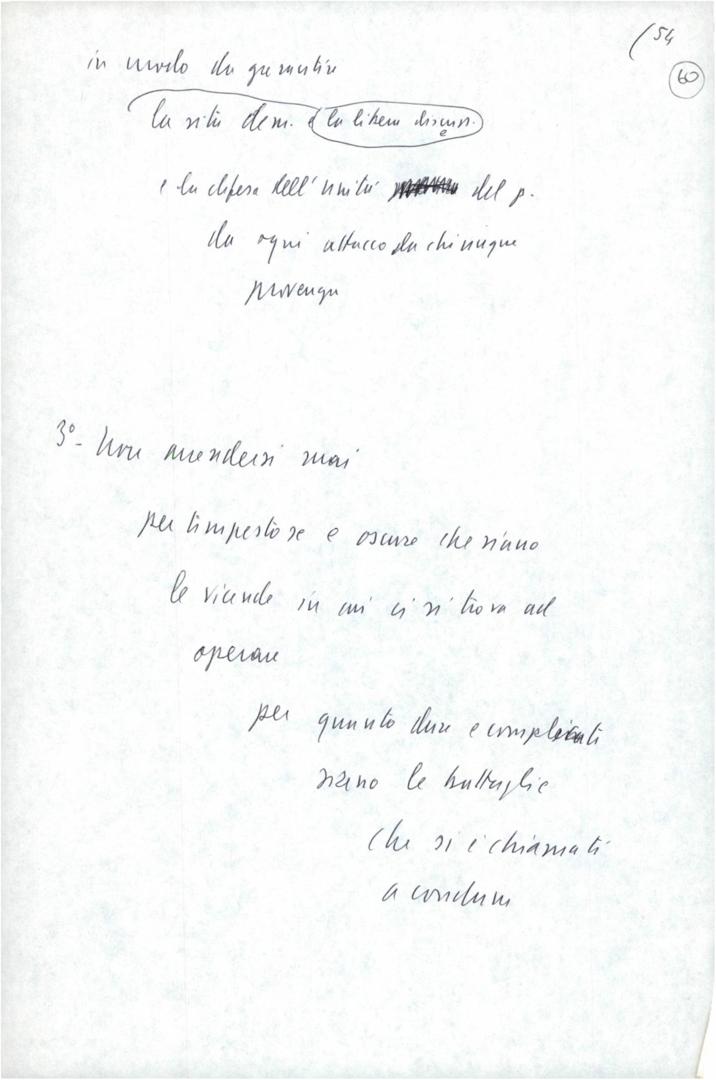 (54
60
in modo da garantire
la vita dem. e la libera discuss.
e
e la difesa dell'unità del p.
da ogni attacco da chiunque
provenga
3°- Non arrendersi mai
per tempestose e oscure che siano
le vicende in cui ci si trova ad
operare
per quanto dure e complicate
siano le battaglie
che si è chiamati
a condurre